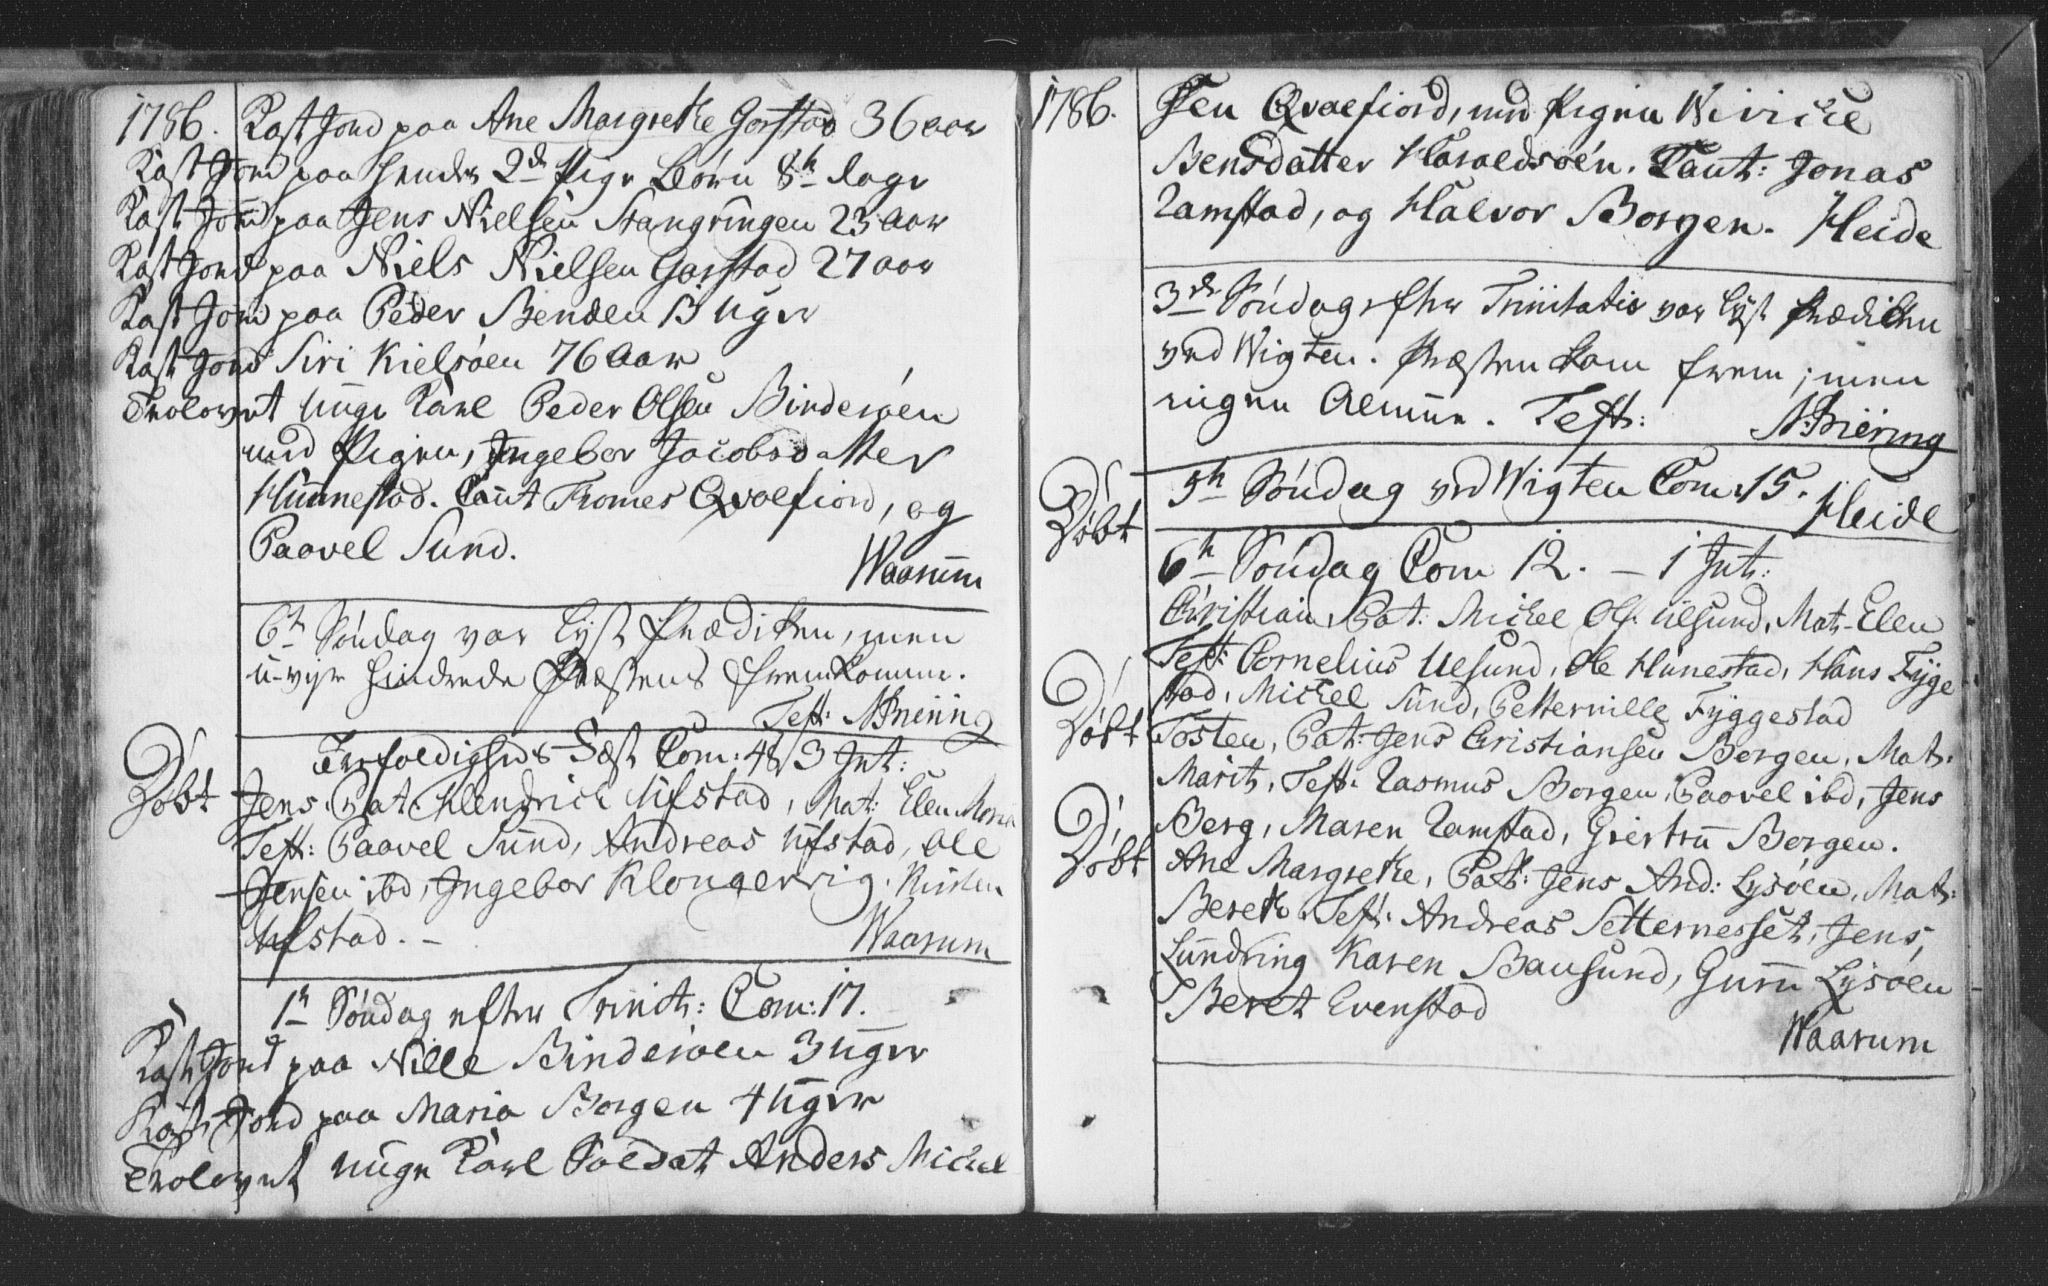 1786. Kast Jord paa Ane Margrethe Garstad 36 aar
Kast Jord paa hendes 2de Pige Børn 8te dage
Kast Jord paa Jens Nielsen Stangringen 23 Aar
Kast Jord paa Niels Nielsen Garstad 27 aar
Kast Jord paa Peder Bensen 13 uger
Kast Jord Siri Kielsøen 76 Aar
Trolovet unge Karl Peder Olsen Binderøen
med Pigen, Ingebor Jacobsdatter
Hunnestad. Caut Thomes Qvalfiord, og
Paavel Sund.
Waarum
6te Søndag var lyst Prædiken, men
u-veyr hindrede Præstens fremkomme.
Test: N Briering
Trefoldigheds Fæst Com: 48 3 Int:
Døbt Jens, Pat. Hendrich Ufstad, Mat: Elen Maria
Test: Paavel Sund, Andreas Ufstad, Ole
Jensen ibd, Ingebor Klongervig. Kirsten
Ufstad. –
Waarum
1te Søndag efter Trinit: Com: 17.
Kast Jord paa Nille Binderøen 3 uger
Kast Jord paa Maria Borgen 4 uger
Trolovet unge Karl Soldat Anders Michel
1786. sen Qvalfiord, med Pigen Wiviche
Bensdatter Haraldsøen. Caut: Jonas
Ramstad, og Halvor Borgen. Heide
3de Søndag efter Trinitatis var lyst Prædiken
ved Wigten. Præsten kom frem; men
ingen Almue. Test: N Briering
5te Søndag ved Wigten Com: 15. Heide
6te Søndag Com 12. – 1 Int:
Døbt Christian, Pat: Michel Ols. Ulsund, Mat. Elen
Test: Cornelius Ulsund, Ole Hunestad, Hans Fyge
stad, Michel Sund, Petternille Fyggestad
Døbt Tosten, Pat: Jens Christiansen Borgen, Mat:
Marit, Test: Rasmus Borgen, Paovel ibd, Jens
Berg, Maren Ramstad, Giertru Borgen.
Døbt Ane Margrethe, Pat: Jens And: Lysøen, Mat:
Bereth Test: Andreas Setternesset, Jens
Lundring Karen Bausund, Guru Lysøen
Beret Evenstad
Waarum